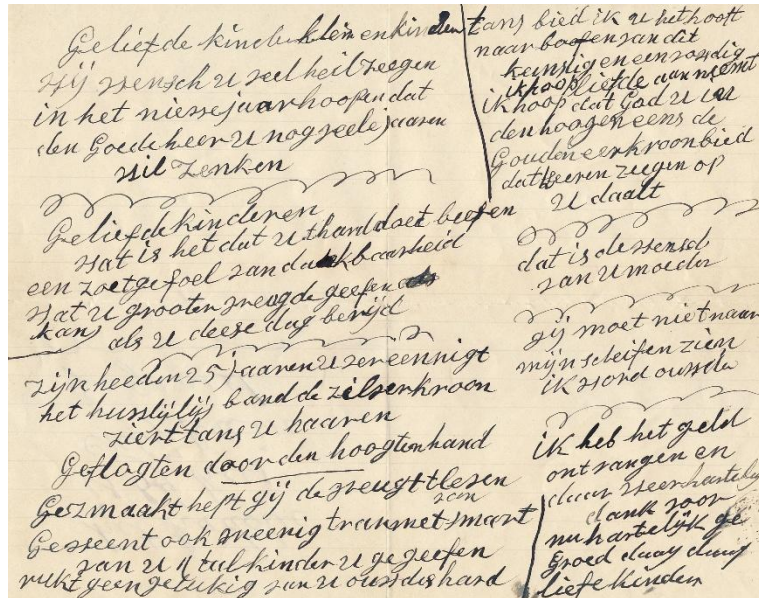 Geliefde kinder klein en kinderen
wij wensch u veel heil zeegen
in het nieuwe jaar hoopen dat
den Goede heer u nog veele jaaren
wil zenken
Geliefde kinderen
wat is het dat u thard doet beefen
een zoet gefoel van dankbaarheid
wat u grooten vreugde geefen
kan als u deese dag berijd
zijn heeden 25 jaaren u vereennigt
het huwlijlijs band de zilverkroon
ziert tans u haaren
Geflogten door den hoogten hand
Gezmaakt heft gij de vreugt tleven
van
Geweent ook meenig tran met smart
van u tal kinder u gegeefen
rukt geen gelukig van u ouwders hard
tans bied ik u het hooft
naar boofen van dit
kunstig en eenvoudig
ik hoop liefde aan neemt
ik hoop dat God u in
den hoogen eens de
Gouden eerkroon bied
dat heeren zeegen op
u daalt
dat is de wensch
van u moeder
gij moet niet naar
mijn schrifen zien
ik word ouwder
ik heb het geld
ontvangen en
daar veer hartelijk
dank voor
nu hartelijk ge
Groed daag daag
liefe kinder